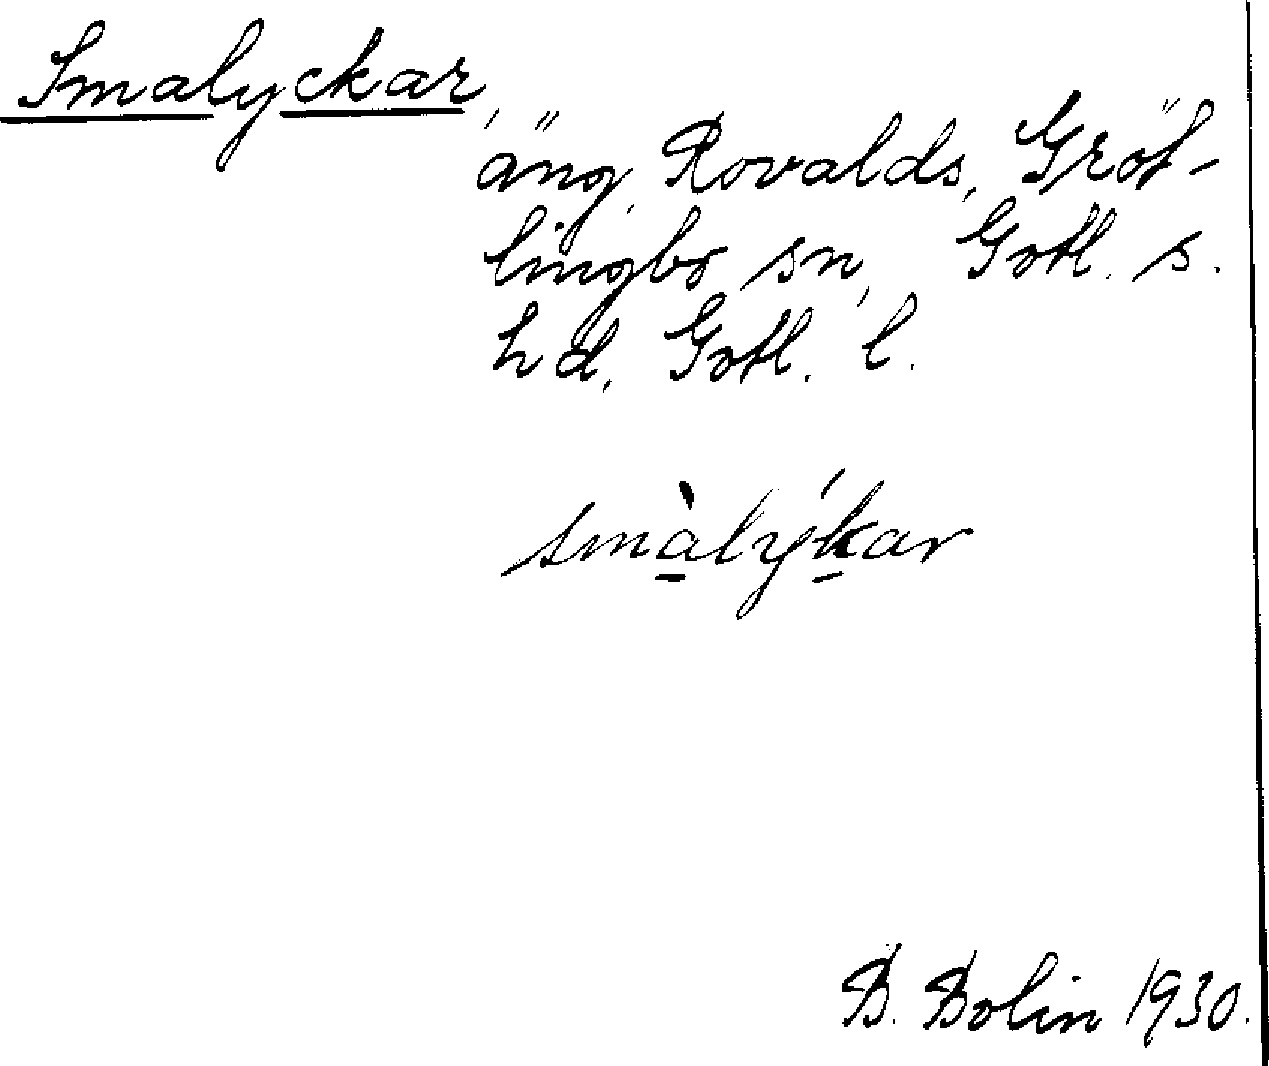 Smalyckar,
äng, Rovalds, Gröt-
lingbo sn, Gotl. s.
hd, Gotl. l.
smàlýkar
B. Bolin 1930.